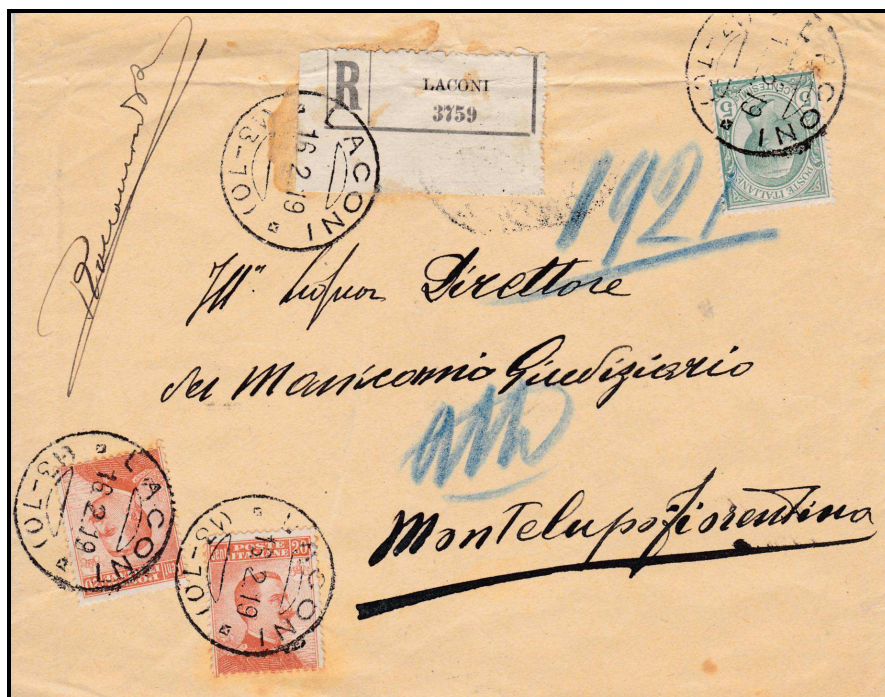 Raccomandata
R
LACONI
3759
LACONI
16.2.19
(13-70)
LACONI
2.19
(13-70)
5 CENTESIMI 5
POSTE ITALIANE
1921
Ill.º Signor Direttore
del Manicomio Giudiziario
Montelupo Fiorentino
LACONI
16.2.19
(13-70)
LACONI
16.2.19
(13-70)
POSTE
ITALIANE
20